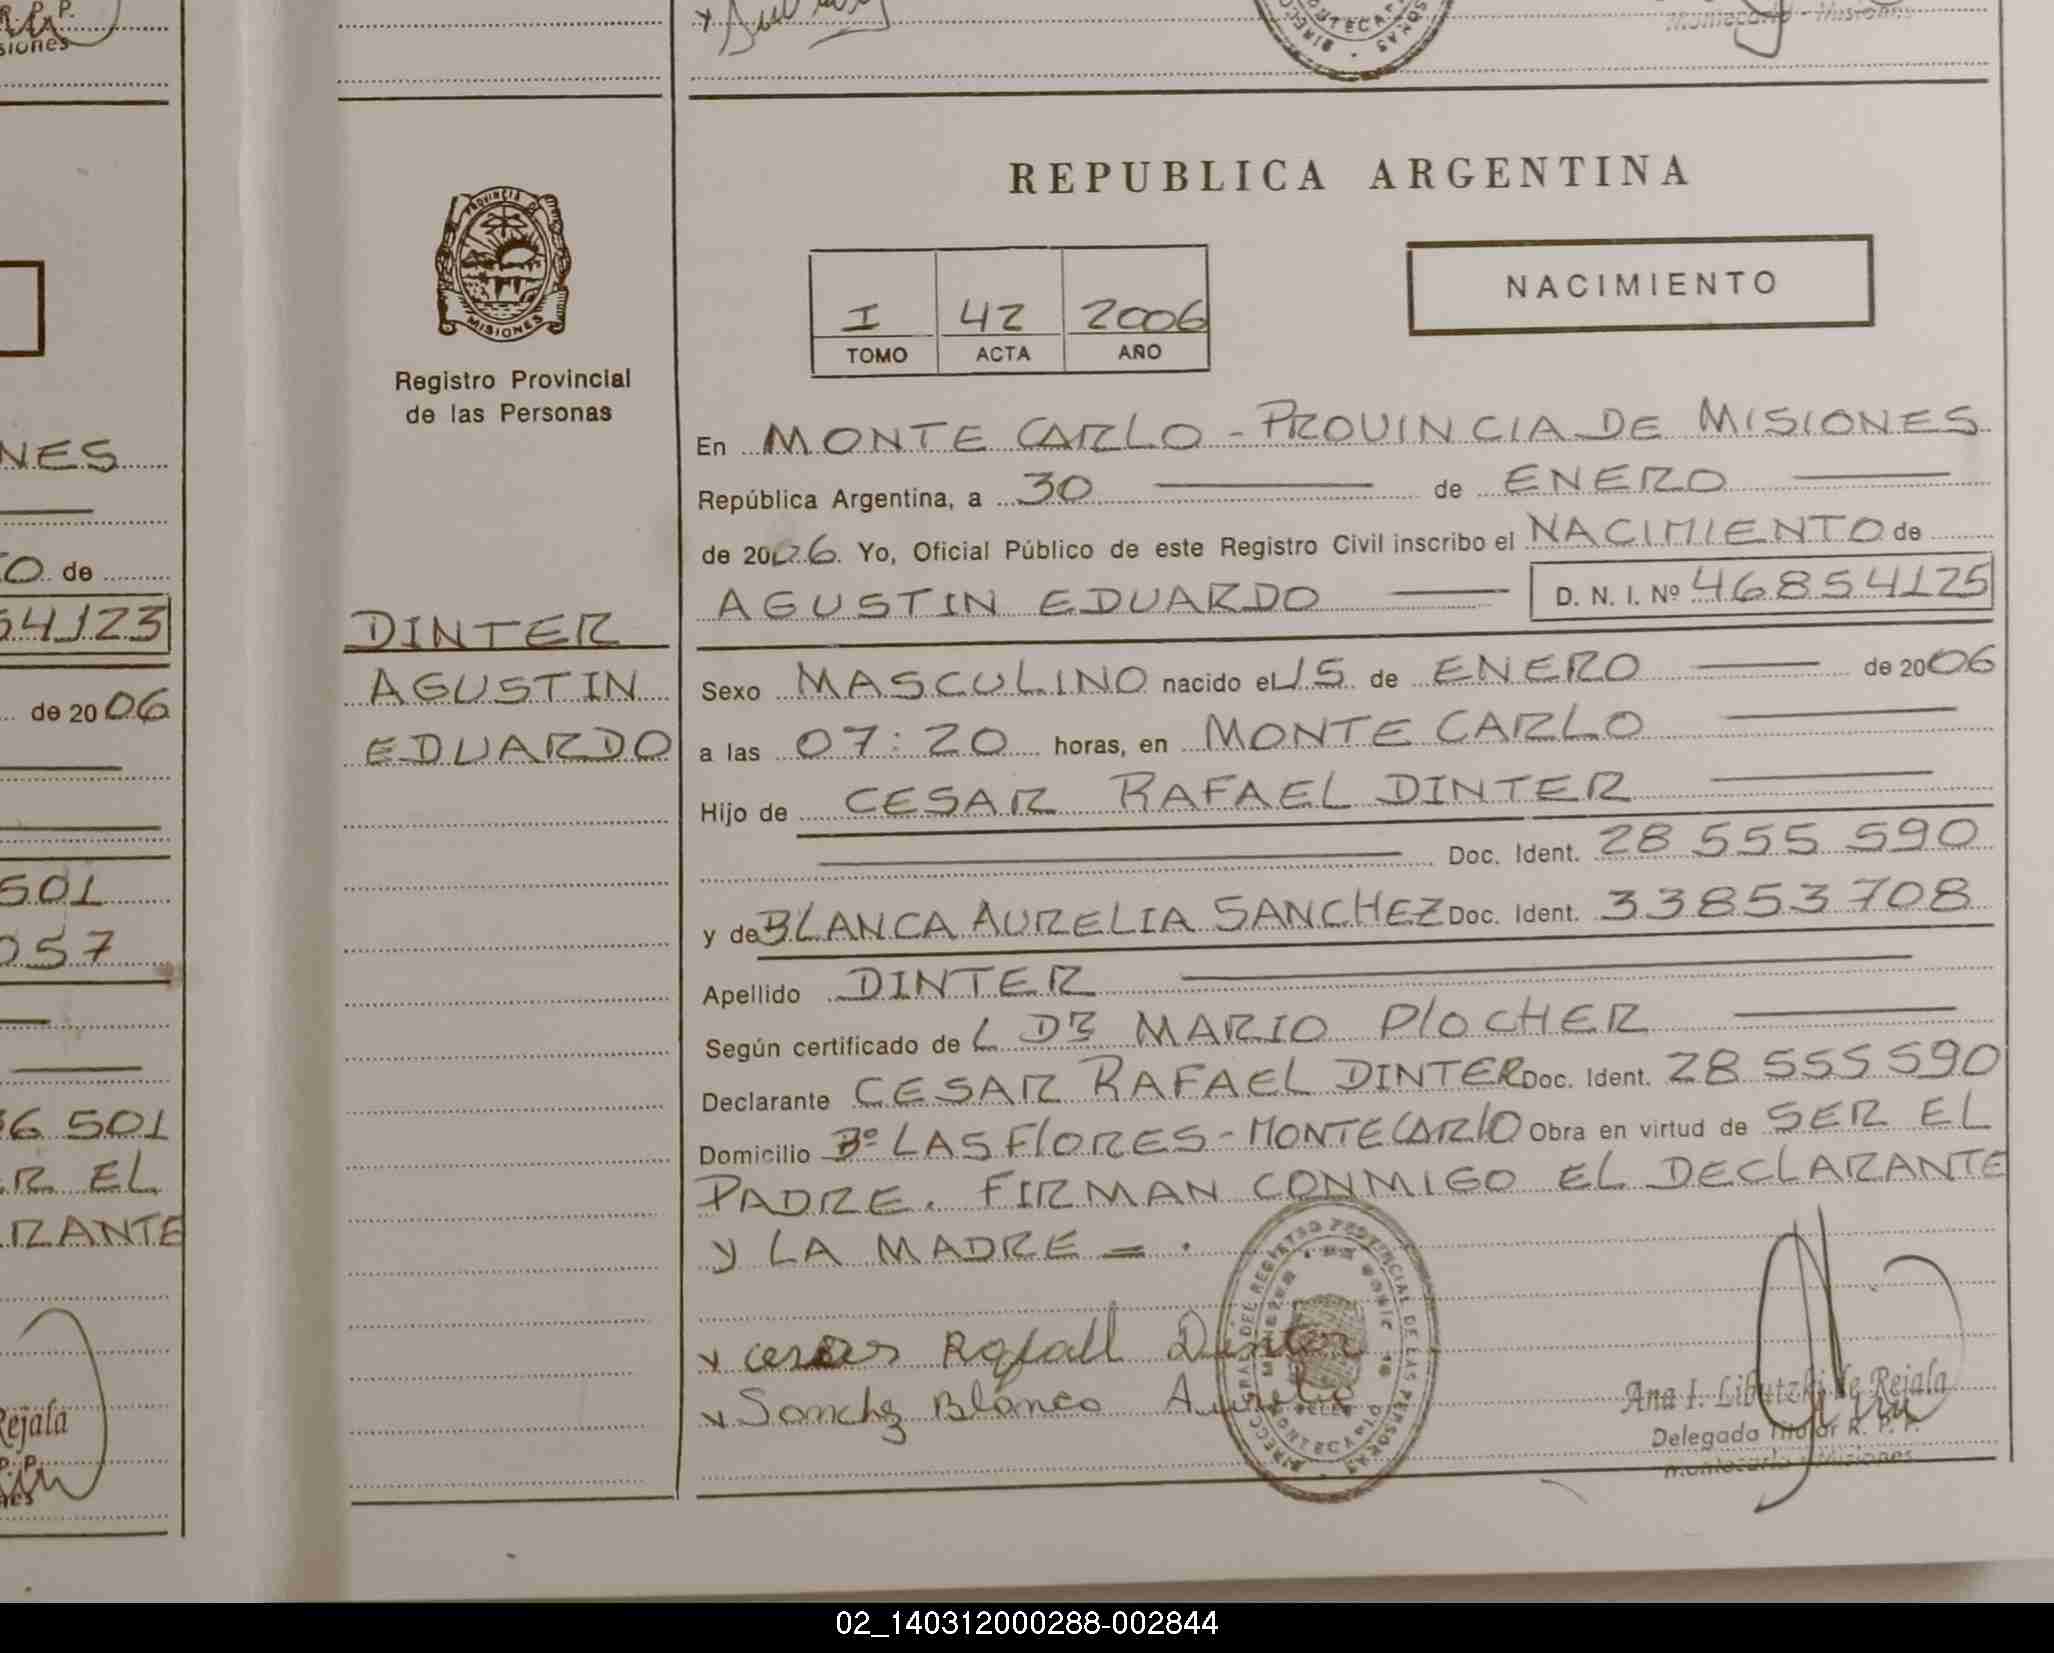 R. P. P.
siones
Montecarlo - Misiones
NES
O de
54123
de 20 06
501
057
36 501
ER EL
RANTE
Rejala
P. P.
nes
PROVINCIA DE
MISIONES
Registro Provincial
de las Personas
DINTER
AGUSTIN
EDUARDO
REPUBLICA ARGENTINA
I 42 2006
TOMO ACTA AÑO
NACIMIENTO
En MONTE CARLO - PROVINCIA DE MISIONES
República Argentina, a 30 de ENERO
de 2006. Yo, Oficial Público de este Registro Civil inscribo el NACIMIENTO de
AGUSTIN EDUARDO D. N. I. Nº 46854125
Sexo MASCULINO nacido el 15 de ENERO de 2006
a las 07:20 horas, en MONTE CARLO
Hijo de CESAR RAFAEL DINTER
Doc. Ident. 28 555 590
y de BLANCA AURELIA SANCHEZ Doc. Ident. 33853708
Apellido DINTER
Según certificado de L DE MARIO PLOCHER
Declarante CESAR RAFAEL DINTER Doc. Ident. 28 555 590
Domicilio Bº LAS FLORES - MONTECARLO Obra en virtud de SER EL
PADRE. FIRMAN CONMIGO EL DECLARANTE
Y LA MADRE = .
x cesar Rafall Dinter
x Sanchz Blanca Aurelia
DIRECCION GRAL. DEL REGISTRO PROVINCIAL DE LAS PERSONAS
MONTECARLO
Ana I. Libutzki de Rejala
Delegada Titular R. P. P.
Montecarlo - Misiones
02_140312000288-002844